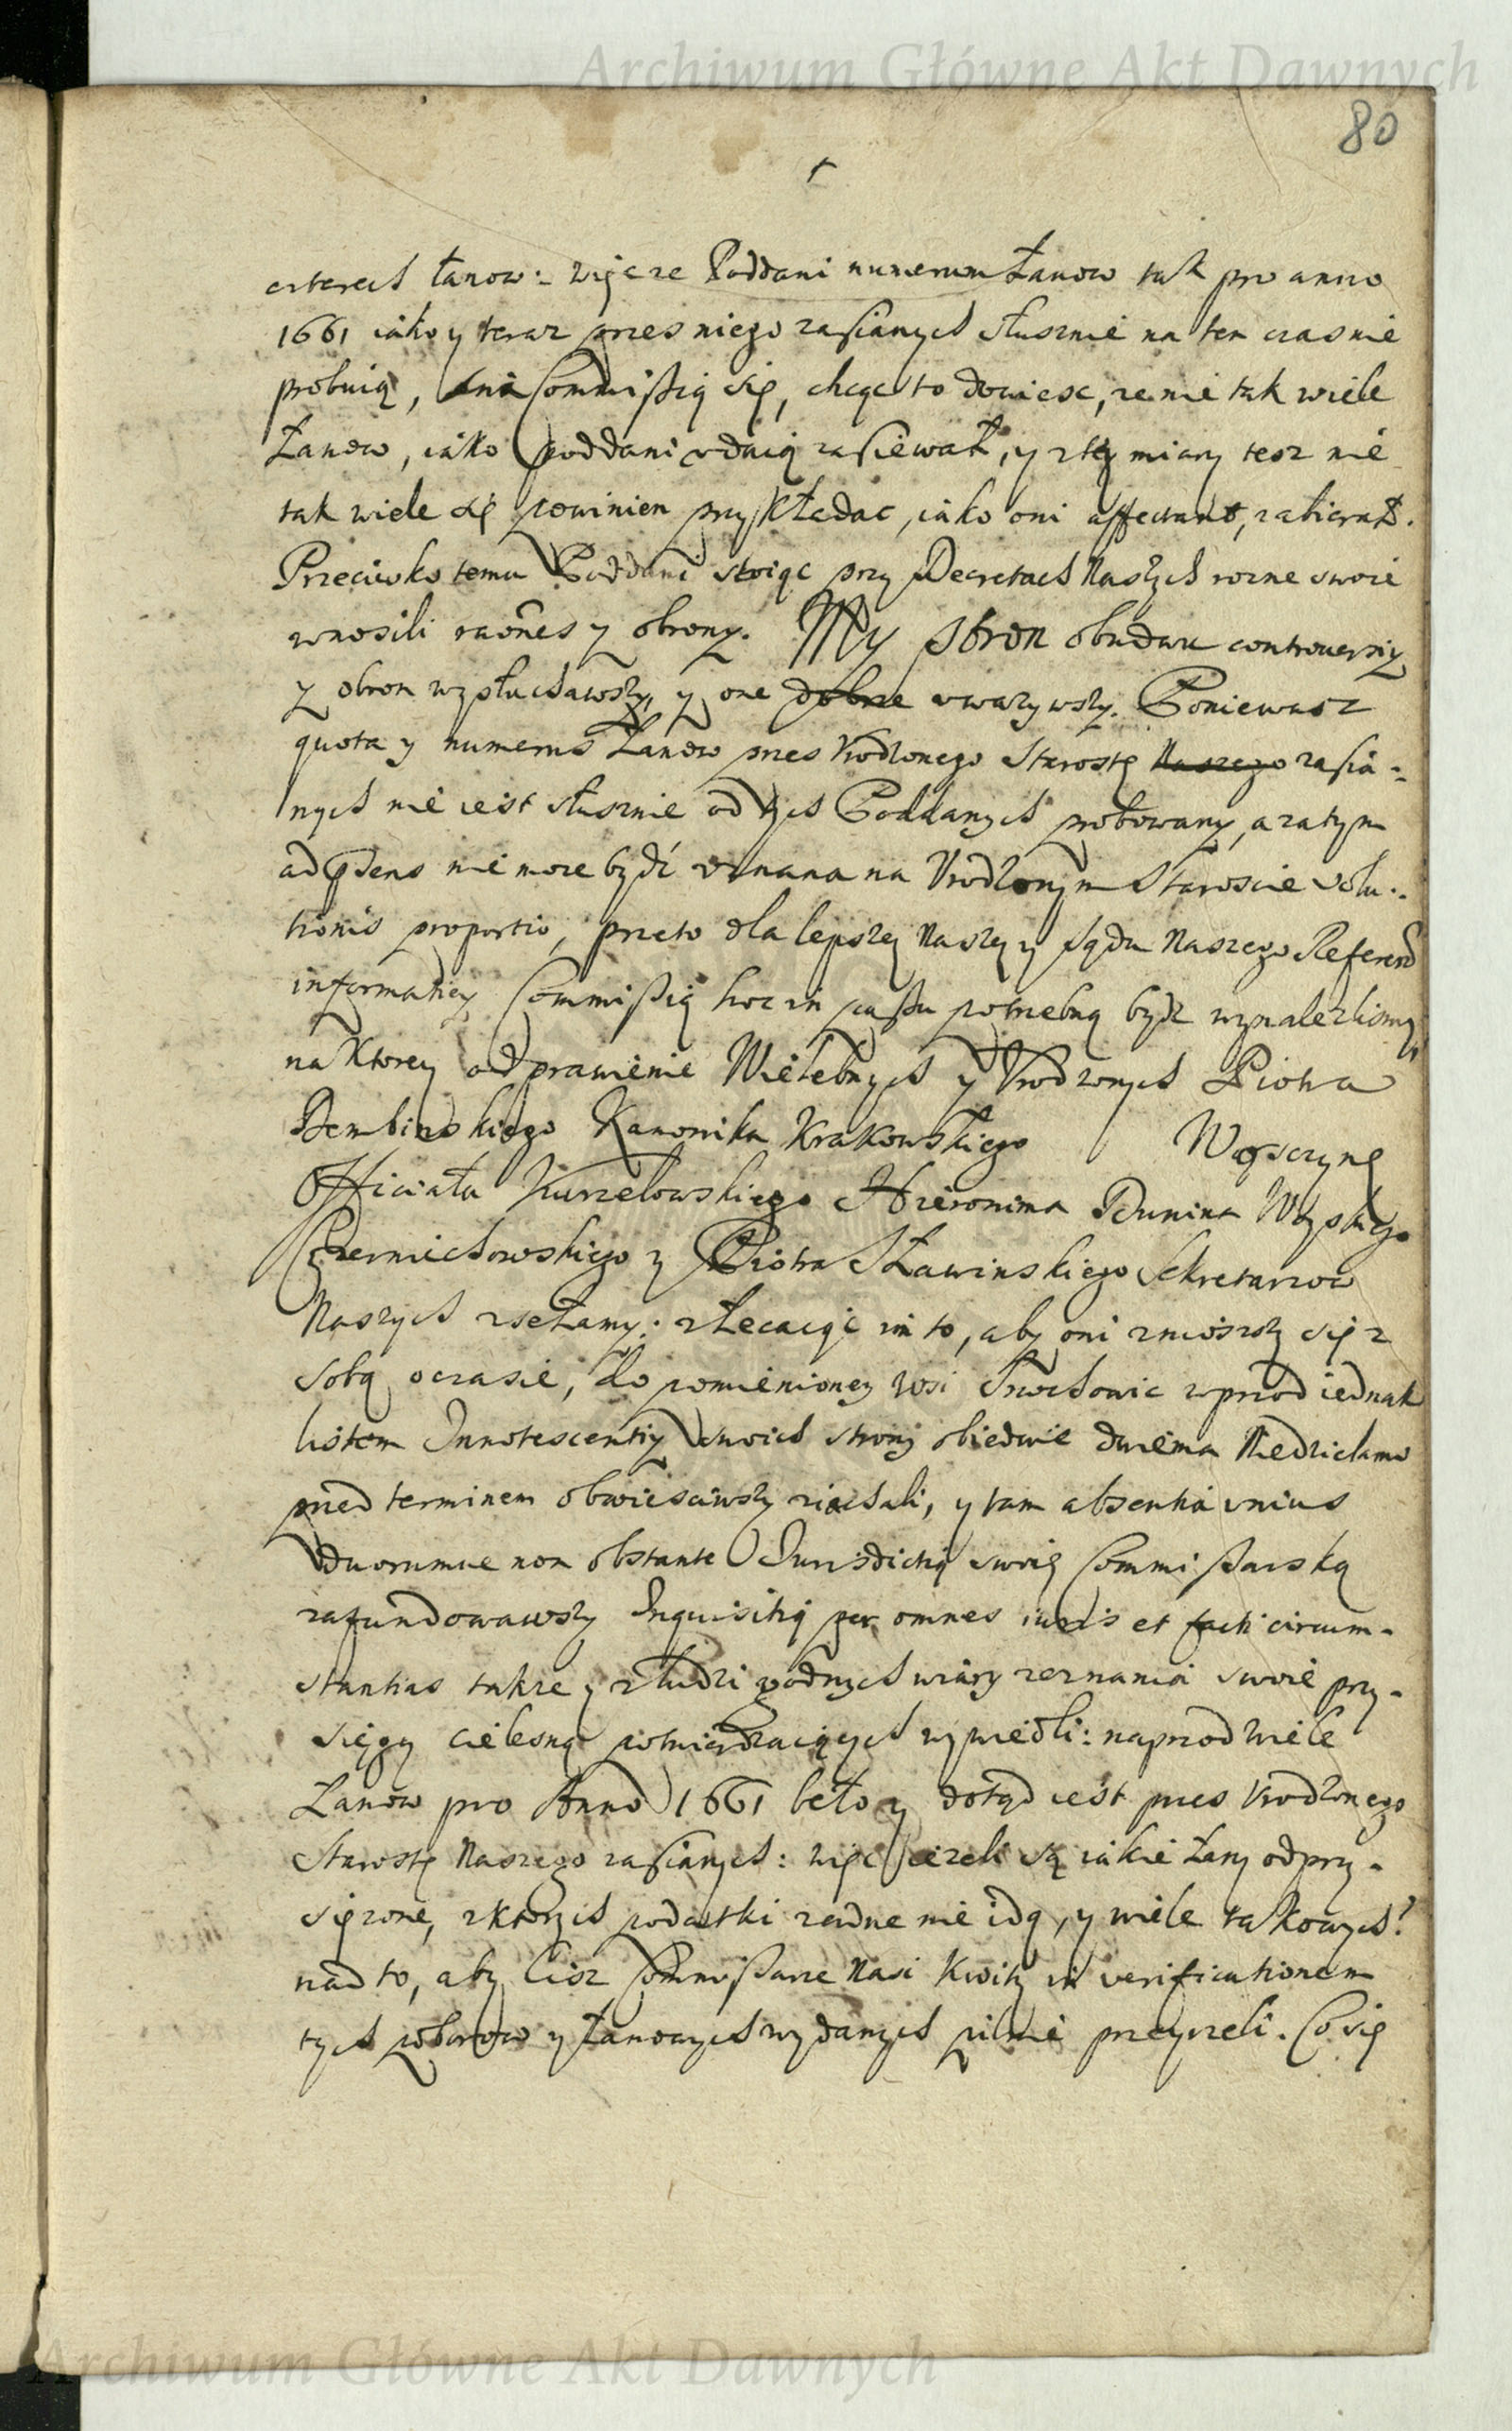 Archiwum Główne Akt Dawnych
80
czterech łanow: więc ze Poddani numerum Łanow tak pro anno
1661 iako y teraz przes niego zasianych słusznie na ten czas nie
probuią, Commissią się, chcąc to dowiesc, ze nie tak wiele
Łanow, iako poddani udaią zasiewał, y z tey miary tesz nie
tak wiele się powinien przykładac, iako oni affectant, zabierał.
Przeciwko temu Poddani stoiąc przy Decretach Naszych rozne swoie
wnosili raones y obrony. My stron obudwu controversiy
y obron wysłuchawszy, y one dobrze uwazywszy. Poniewasz
quota y numerus Łanow przes Urodzonego Starostę Naszego zasia=
nych nie iest słusznie od tych Poddanych probowany, a zatym
ad pns nie moze bydź uznana na Urodzonym Staroscie solu=
tionis proportio, przeto dla lepszey Naszey y sądu Naszego Referend
informatiey Commissią hoc in passu potrzebną bydz wynalezlismy,
na ktorey odprawienie Wielebnych y Urodzonych Piotra
Dembinskiego Kanonika Krakowskiego Wąsczynę
Officiała Kurzelowskiego Hieronima Dunina Wąskiego
Czermichowskiego y Piotra Sławinskiego Sekretarzow
Naszych zsełamy: zlecaiąc im to, aby oni zniosszy się z
sobą o czasie, do pomienioney wsi wprzod iednak
listem Innotescentiy swoich strony obiedwie dwiema Niedzielami
przed terminem obwiesciwszy ziachali, y tam absentia unius
duorumve non obstante Jurisdictią swoię Commissarską
zafundowawszy Inquisitią per omnes iuris et facti circum=
stantias takze y z ludzi godnych wiary zeznania swoie przy=
sięgą cielesną potwierdzaiących wywiedli: naprzod wiele
Łanow pro Anno 1661 beło y dotąd iest przes Urodzonego
Starostę Naszego zasianych: więc iezeli są iakie łany odprzy=
siężone, z ktorych podatki zadne nie idą, y wiele takowych?
nad to, aby cisz Commissarze Nasi kwity in verificationem
tych poborow y Łanowych wydanych pilnie przeyrzeli. Co się
Archiwum Główne Akt Dawnych